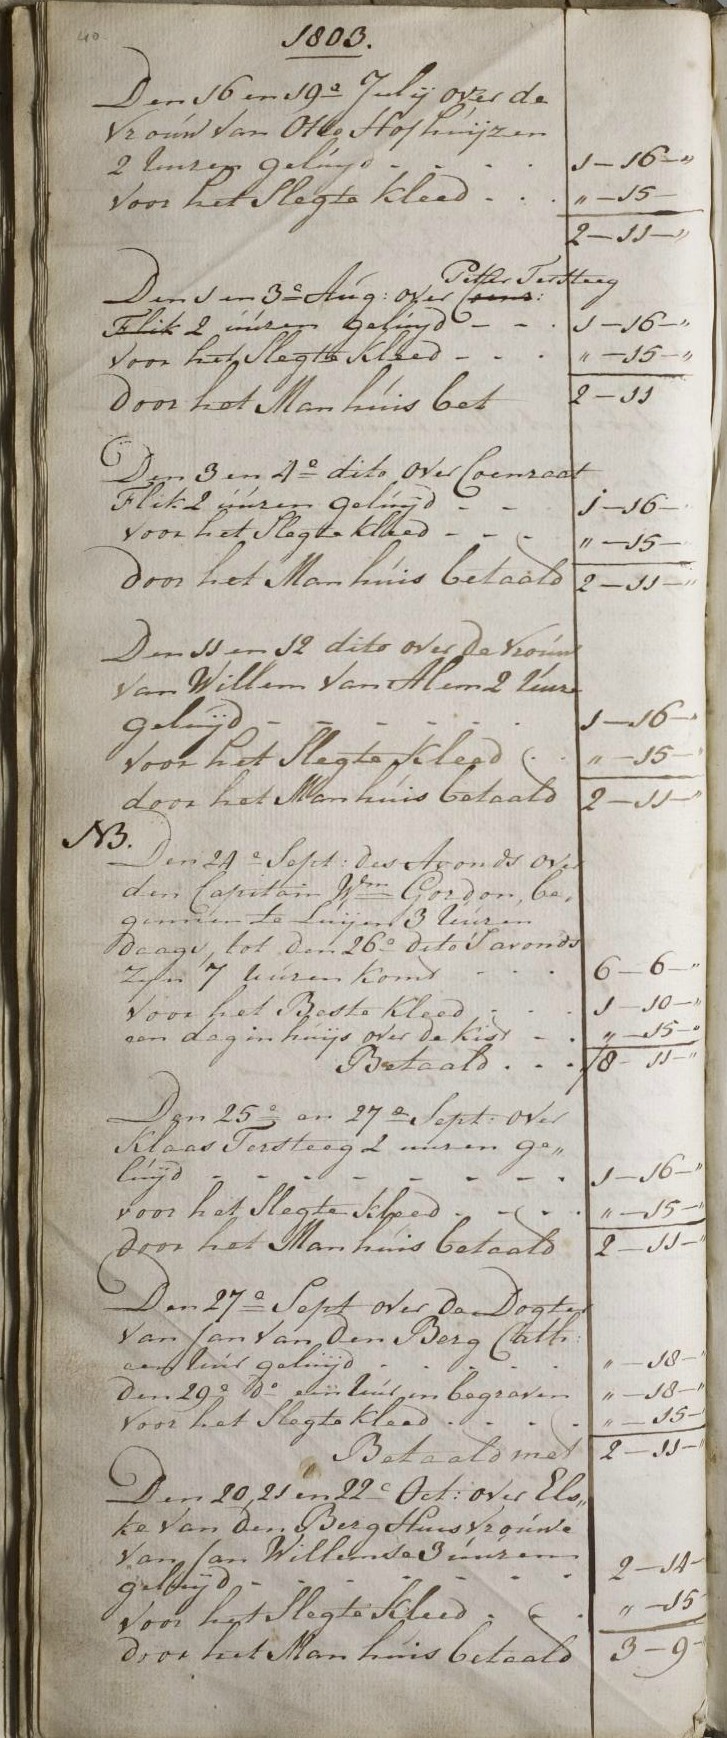 40
1803.
Den 16 en 19e Julij over de
vrouw van Otto Hofhuijzen
2 uuren geluijd - - - - 1 - 16 - "
voor het Slegte kleed - - - " - 15 -
2 - 11 - "
Pitter Tersteeg
Den 1 en 3e Aug: over Coenr:
Flik 2 úúren geluijd - - - 1 - 16 - "
voor het Slegte Kleed - - - " - 15 - "
door het Manhúis bet 2 - 11
Den 3 en 4e dito over Coenraat
Flik 2 úúren geluijd - - 1 - 16 -
voor het Slegte kleed - - - " - 15 -
door het Manhúis betaald 2 - 11 - "
Den 11 en 12 dito over de vrouw
van Willem van Alem 2 Uure
geluijd - - - - - - 1 - 16 - "
voor het Slegte Kleed - - " - 15 - "
door het Manhúis betaald 2 - 11 - "
NB.
Den 24e Sept: des Avonds over
den Capitain Wm Gordon, be,
gonnen te Luijen 3 Uuren
daags, tot den 26e dito Savonds
Zijn 7 uuren komt - - - 6 - 6 - "
voor het Beste Kleed - - - 1 - 10 - "
een dag in huijs over de kist - - " - 15 - "
Betaald . . . f 8 - 11 - "
Den 25e en 27e Sept: over
Klaas Tersteeg 2 uuren ge,,
luijd - - - - - - - - 1 - 16 - "
voor het Slegte Kleed - - - - " - 15 - "
door het Manhúis betaald 2 - 11 - "
Den 27e Sept over de Dogter
van Jan van den Berg Cath:
een Uúr geluijd - - - - - " - 18 - "
den 29e do een Uúr en begraven " - 18 - "
voor het Slegte Kleed - - - - " - 15 -
Betaald met 2 - 11 - "
Den 20, 21 en 22e Oct: over Els,,
ke van den Berg Huisvrouwe
van Jan Willemse 3 úúren
geluijd - - - - - - - 2 - 14 -
voor het Slegte Kleed - - - " - 15
door het Manhúis betaald 3 - 9 -